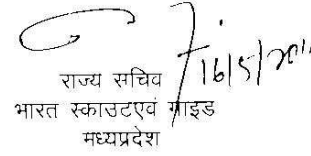 16/5/201
राज्य सचिव
भारत स्काउटएवं गाइड
मध्यप्रदेश